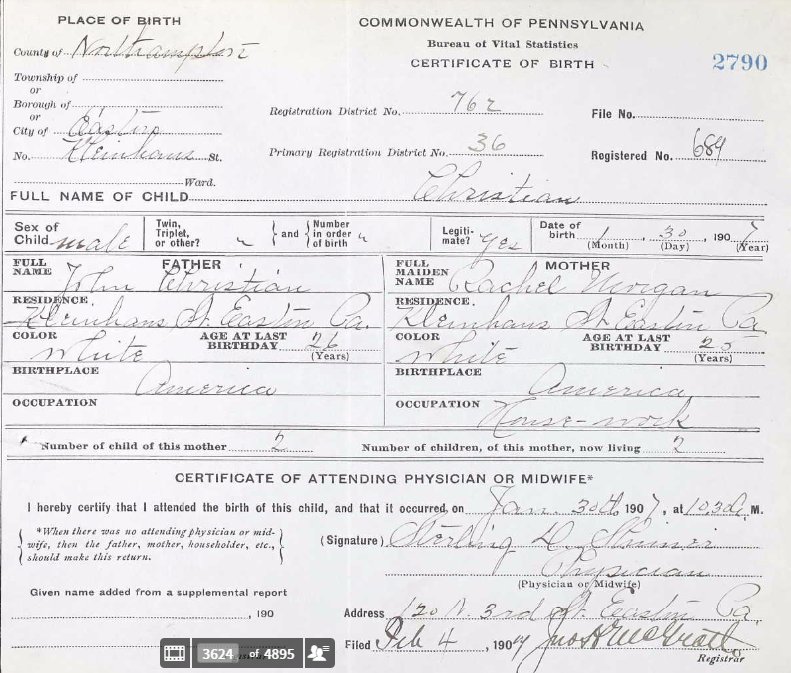 PLACE OF BIRTH
COMMONWEALTH OF PENNSYLVANIA
Bureau of Vital Statistics
CERTIFICATE OF BIRTH
2790
County of Northampton
Township of
or
Borough of
or
City of Easton
No. Kleinhans St.
Ward.
Registration District No. 762
File No.
Primary Registration District No. 36
Registered No. 684
FULL NAME OF CHILD Christian
Sex of Child male
Twin, Triplet, or other? "
and
Number in order of birth "
Legitimate? Yes
Date of birth 1 (Month) 30 (Day), 1907 (Year)
FATHER
FULL NAME John Christian
RESIDENCE. Kleinhans St. Easton Pa.
COLOR White
AGE AT LAST BIRTHDAY 26 (Years)
BIRTHPLACE America
OCCUPATION
MOTHER
FULL MAIDEN NAME Rachel Morgan
RESIDENCE. Kleinhans St Easton Pa
COLOR White
AGE AT LAST BIRTHDAY 25 (Years)
BIRTHPLACE America
OCCUPATION House-work
Number of child of this mother 2
Number of children, of this mother, now living 2
CERTIFICATE OF ATTENDING PHYSICIAN OR MIDWIFE*
I hereby certify that I attended the birth of this child, and that it occurred, on Jan. 30th, 1907, at 10.30 M.
*When there was no attending physician or midwife, then the father, mother, householder, etc., should make this return.
(Signature) Sterling D.
Physician
(Physician or Midwife)
Given name added from a supplemental report
, 190
Address 120 N. 3rd St. Easton Pa.
Filed Feb 4, 1907
Registrar
3624 of 4895